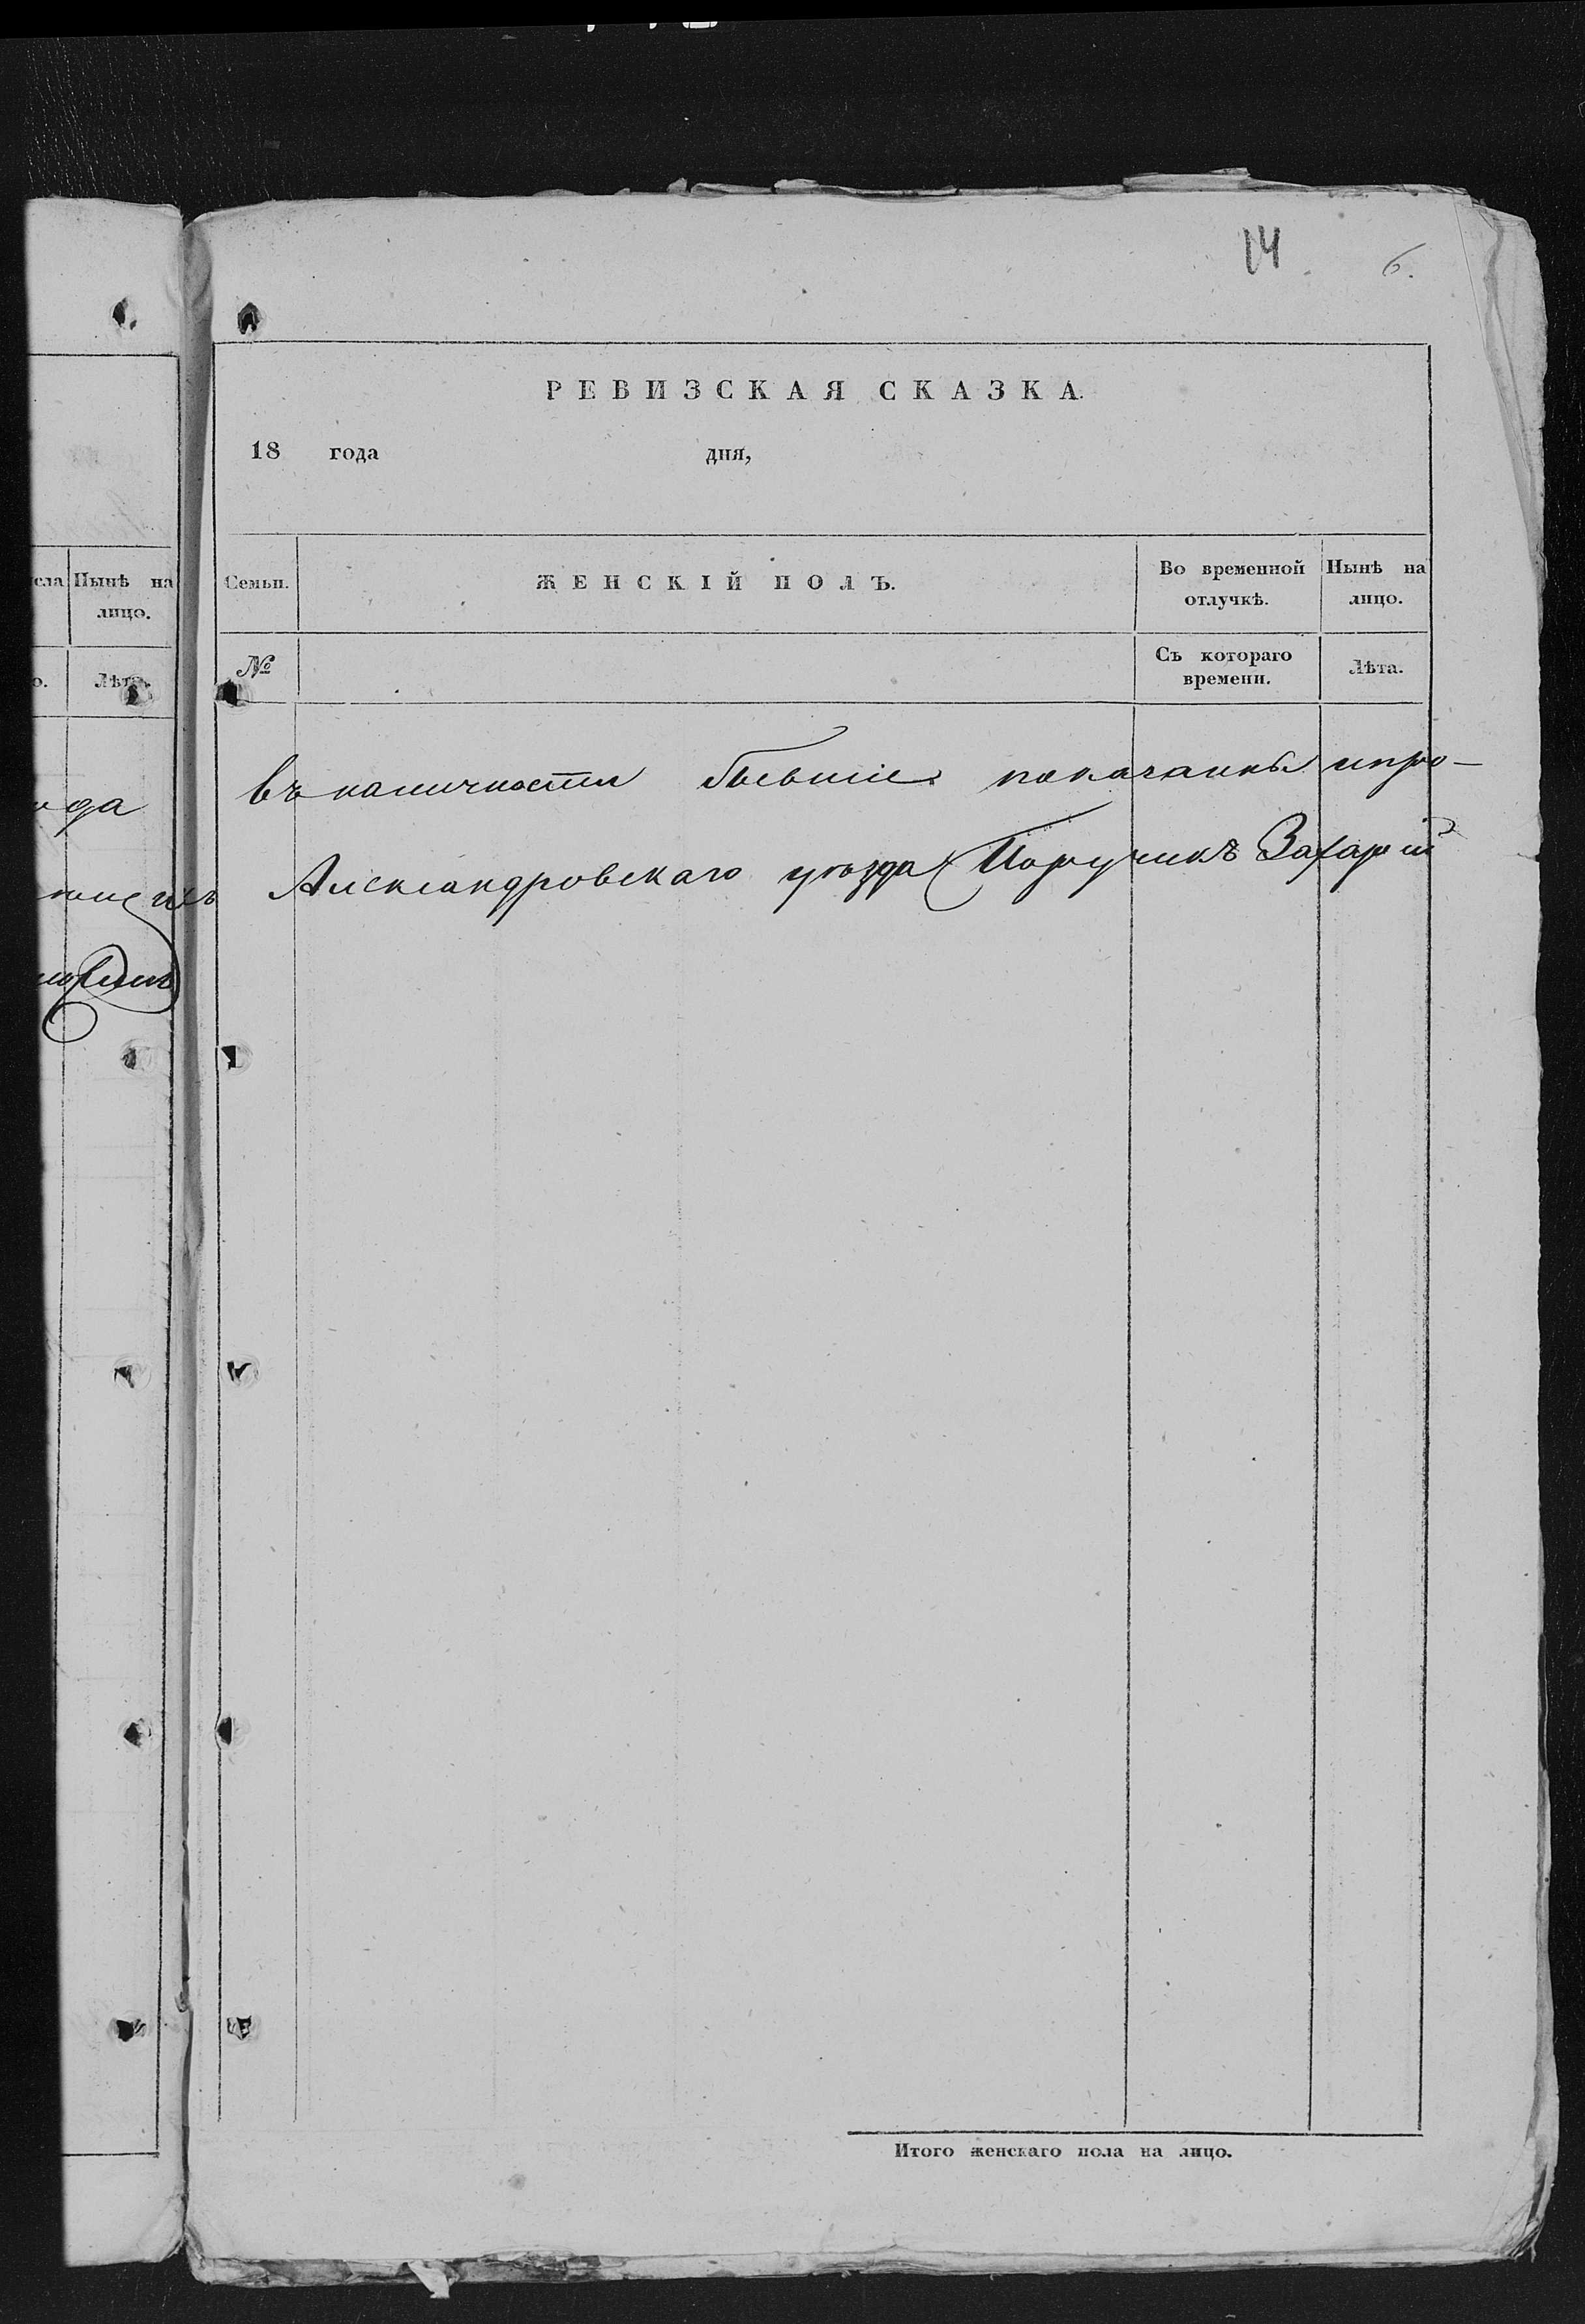 14 6.
РЕВИЗСКАЯ СКАЗКА.
18 года дня,
сла Нынѣ на лицо.
о. Лѣта.
Семьи. ЖЕНСКІЙ ПОЛЪ. Во временной отлучкѣ. Нынѣ на лицо.
№ Съ котораго времени. Лѣта.
въ наличности бывшіе показаны и про-
Александровскаго уѣзда Поручикъ Захарій
да
Итого женскаго пола на лицо.